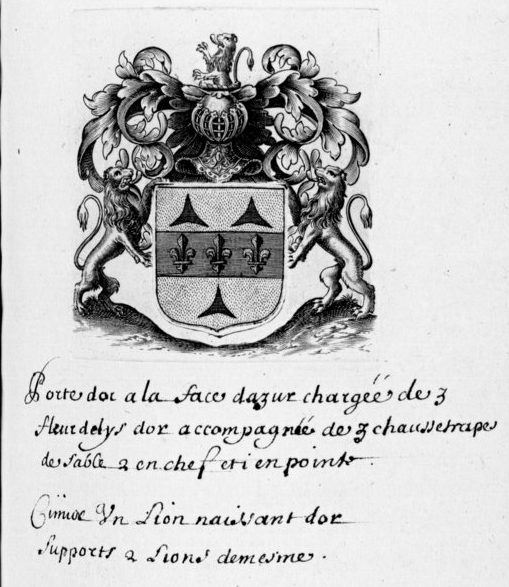 Porte dor a la face dazur chargéé de 3
fleurdelys dor accompagnéé de 3 chaussetrapes
de sable 2 en chef et i en pointe.
Cimier Vn Lion naissant dor
supports 2 Lions demesme.